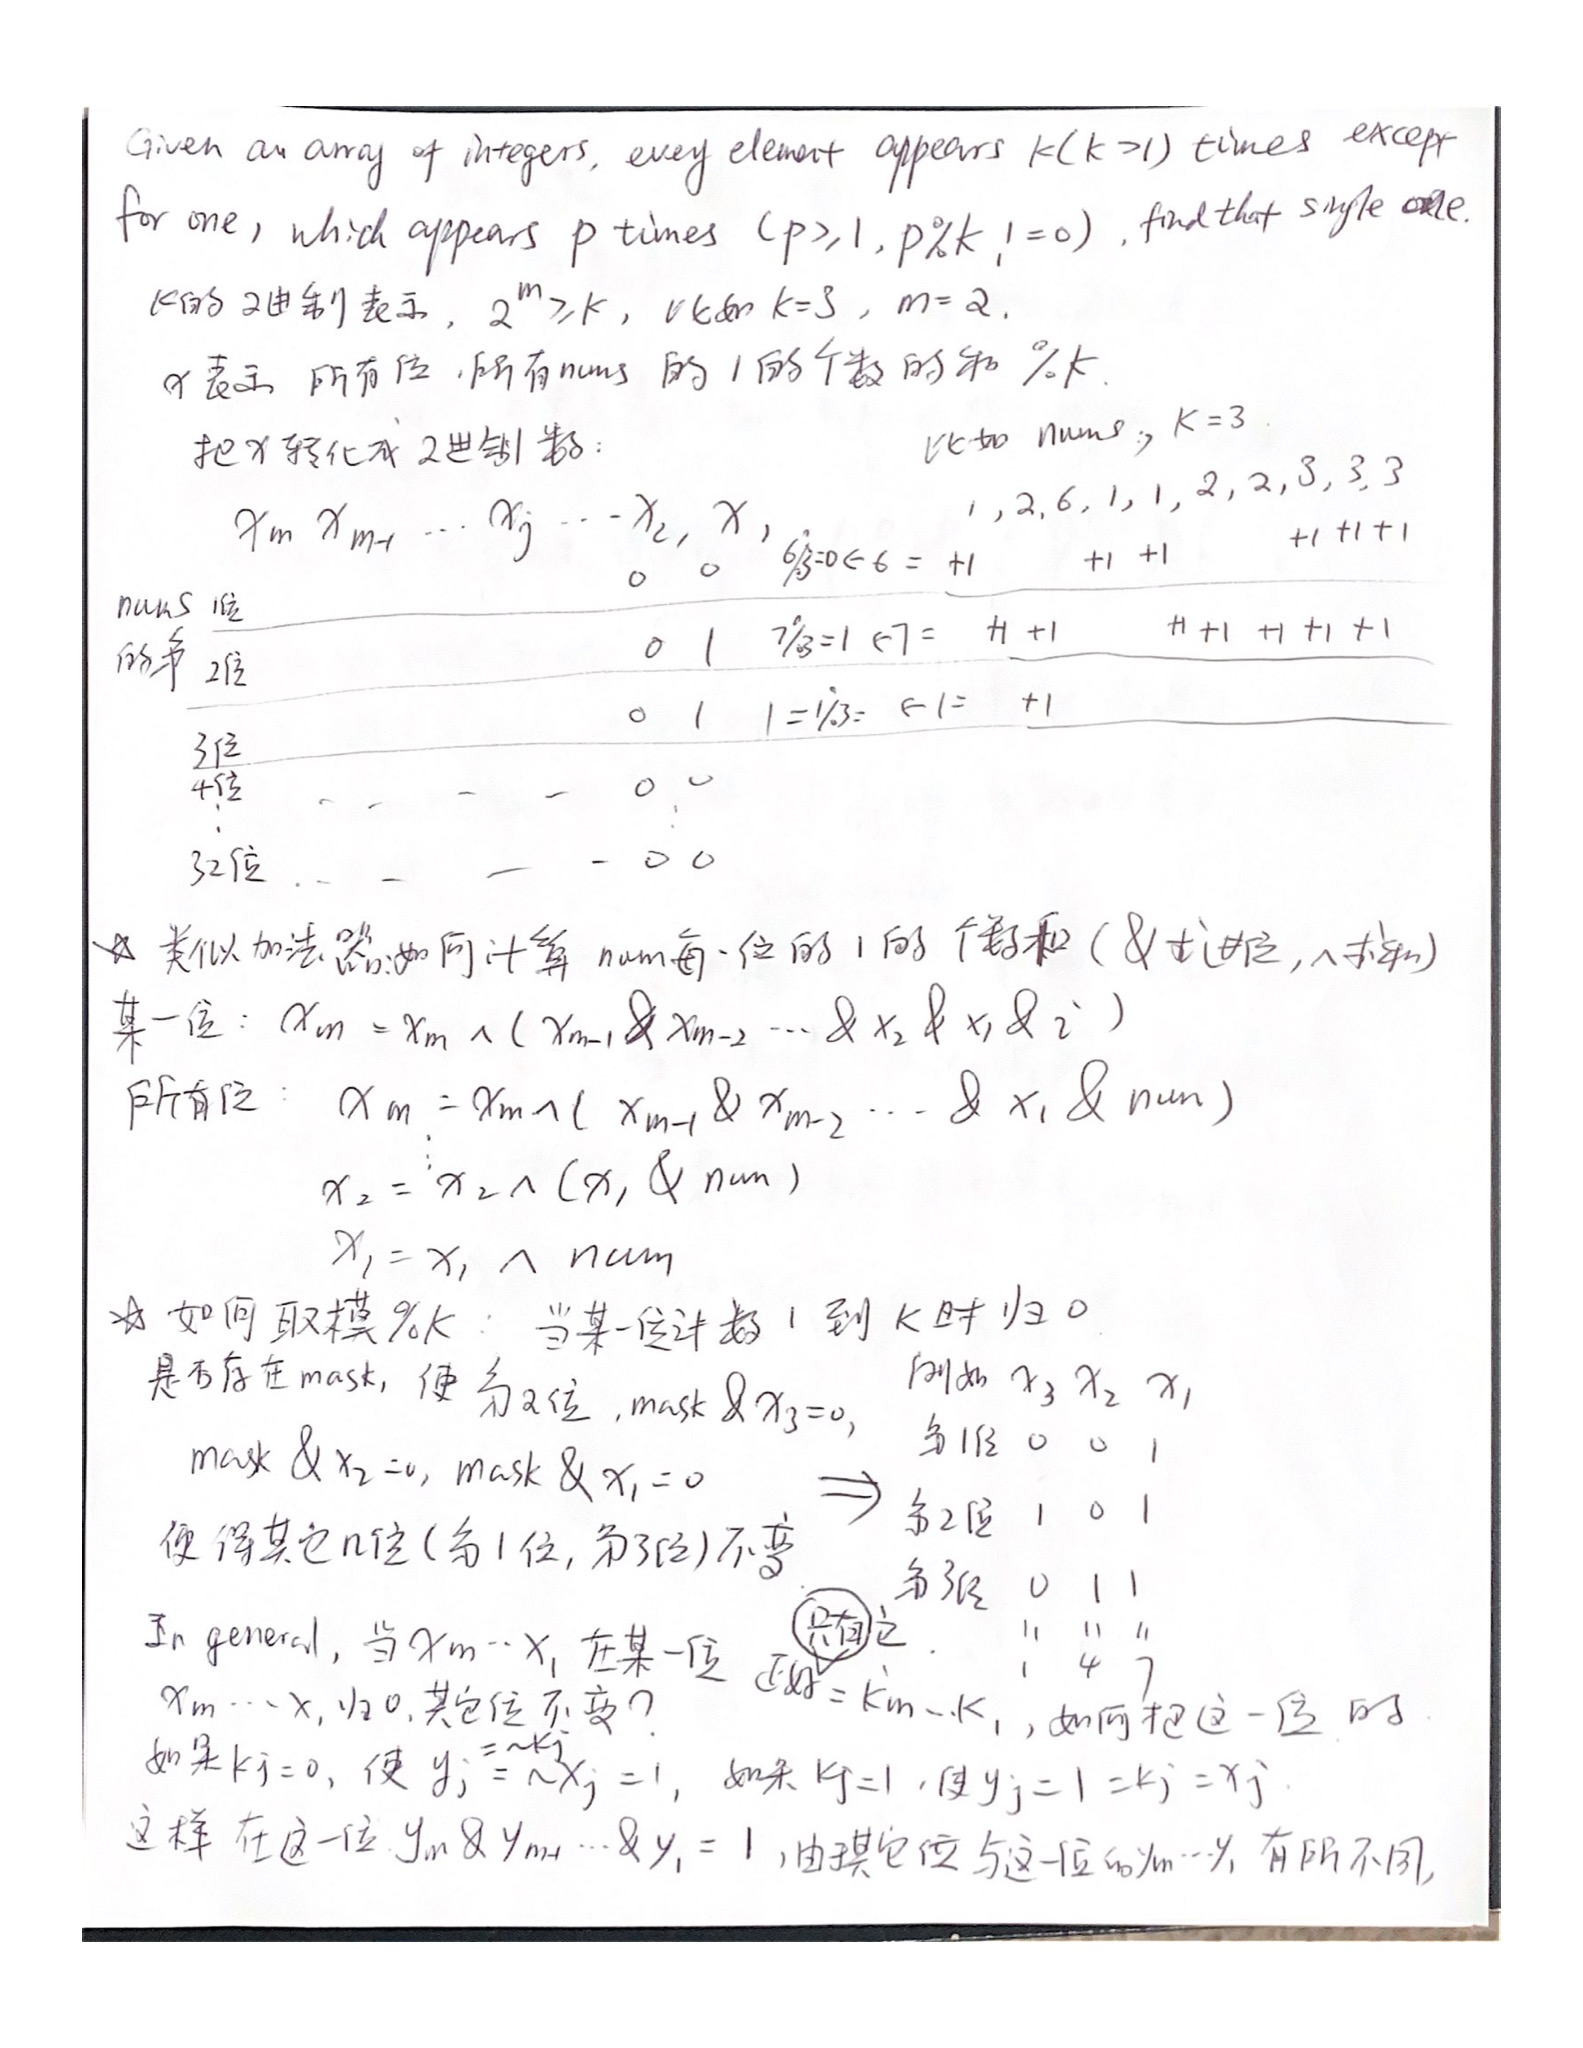 Given an array of integers, every element appears k(k>1) times except
for one, which appears p times (p≥1, p%k != 0), find that single one.
k的2进制表示, 2^m ≥ k, 比如 k=3, m=2.
x表示 所有位,所有nums 的1的个数的和 %k.
把x转化成2进制数:
比如 nums:, k=3
1, 2, 6, 1, 1, 2, 2, 3, 3, 3
x_m x_{m-1} ... x_j ... x_2, x_1
nums的第 1位 0 0 6%3=0 ← 6 = +1 +1 +1 +1 +1 +1
2位 0 1 7%3=1 ← 7 = +1 +1 +1 +1 +1 +1 +1
3位 0 1 1=1%3= ← 1 = +1
4位 - - - - 0 0
⋮
32位 - - - - 0 0
☆ 类似加法器:如何计算 num每一位的1的个数和 (&求进位, ∧求和)
某一位: x_m = x_m ∧ (x_{m-1} & x_{m-2} ... & x_2 & x_1 & i)
所有位: x_m = x_m ∧ (x_{m-1} & x_{m-2} ... & x_1 & num)
⋮
x_2 = x_2 ∧ (x_1 & num)
x_1 = x_1 ∧ num
☆ 如何取模%k: 当某一位计数1到k时归0
是否存在mask, 使第2位, mask & x_3=0,
mask & x_2=0, mask & x_1=0
使得其它n位(第1位, 第3位)不变
⇒
例如 x_3 x_2 x_1
第1位 0 0 1
第2位 1 0 1
第3位 0 1 1
" " "
1 4 7
In general, 当x_m...x_1 在某一位 只有它 正好=k_m...k_1, 如何把这一位的
x_m...x_1归0,其它位不变?
如果k_j=0, 使 y_j =~k_j =~x_j =1, 如果 k_j=1,使y_j=1=k_j=x_j.
这样在这一位 y_m & y_{m-1} ... & y_1 = 1, 由于其它位与这一位的y_m...y_1有所不同,